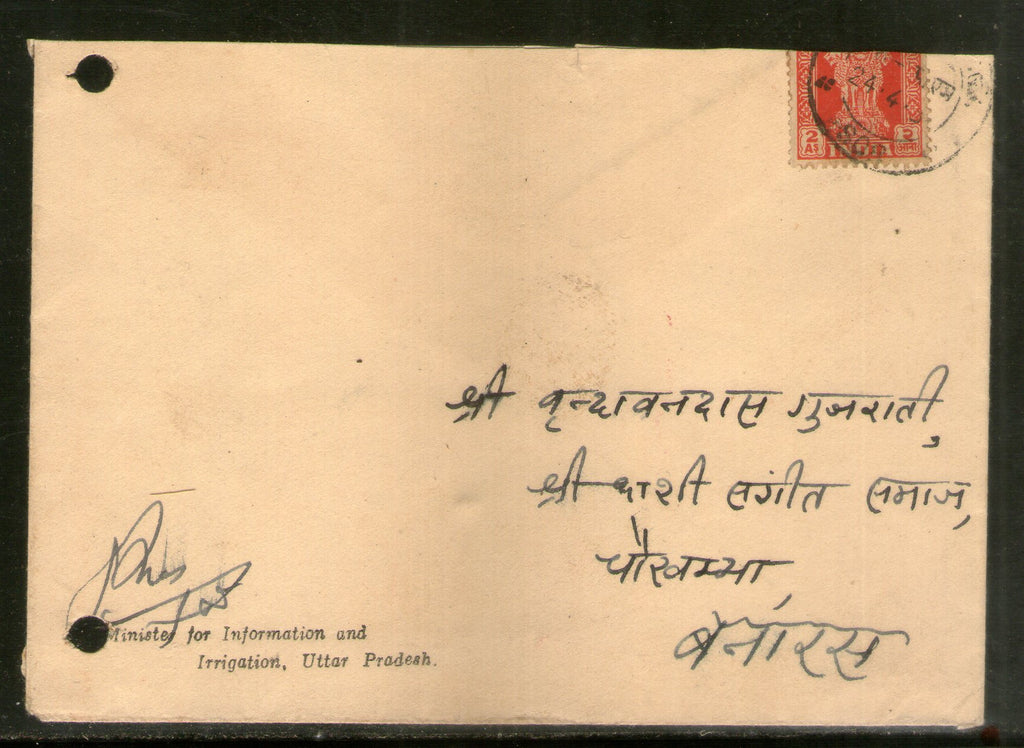 24.4
2 AS INDIA 2 आना
श्री वृन्दावनदास गुजराती,
श्री काशी संगीत समाज,
चौखम्भा,
बनारस
Minister for Information and
Irrigation, Uttar Pradesh.